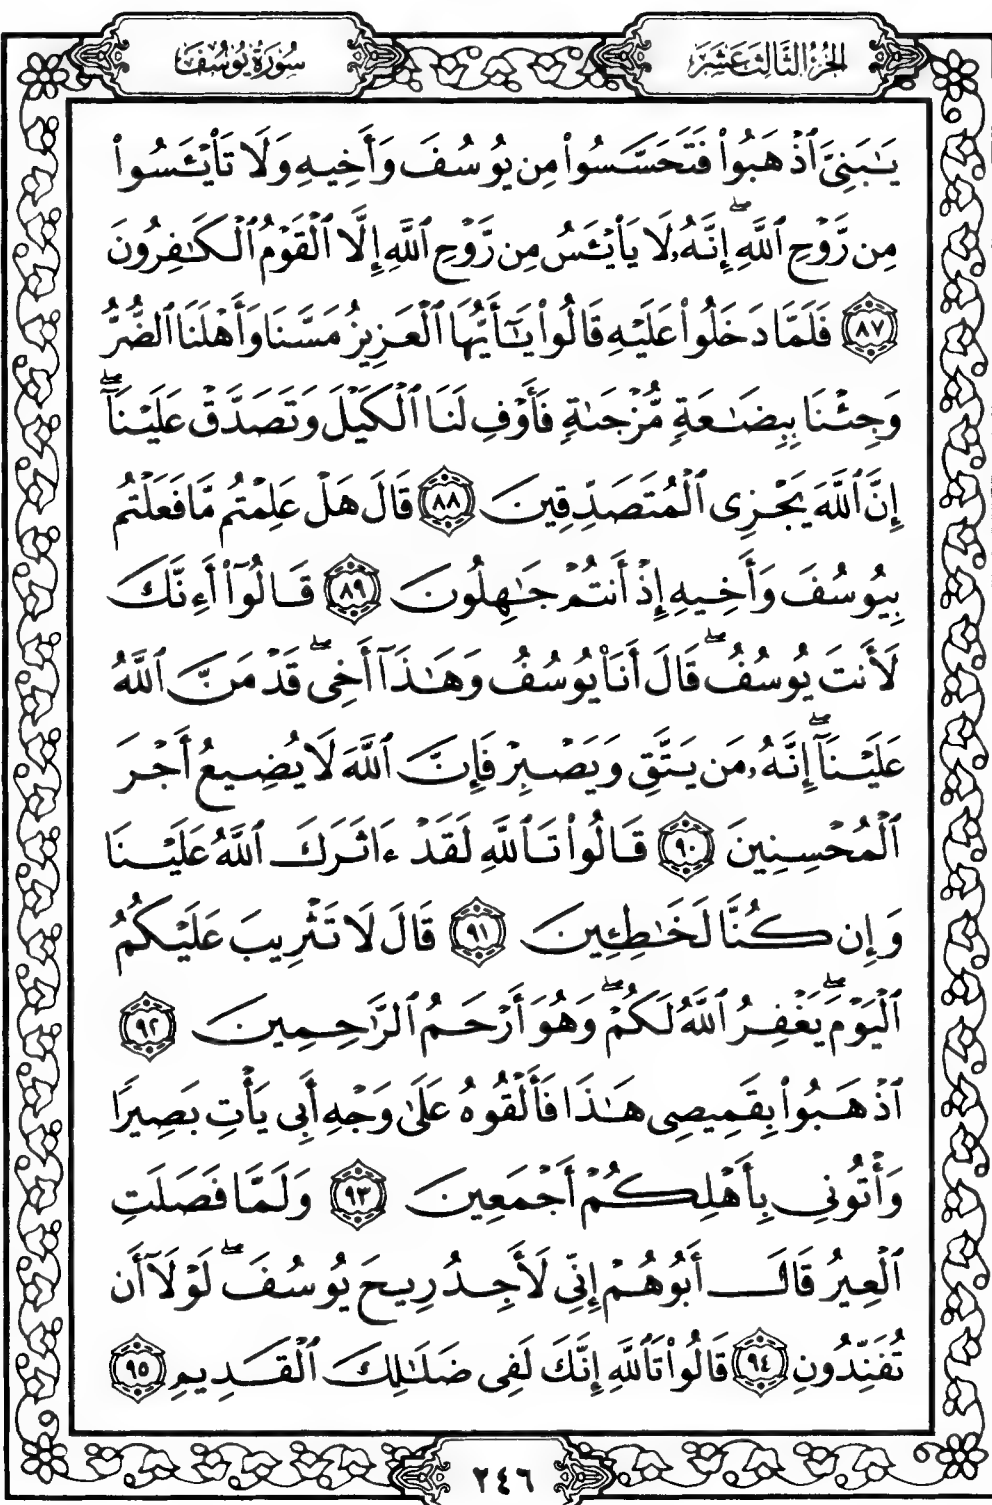 الجزء الثالث عشر
سورة يوسف
يَٰبَنِىَّ ٱذْهَبُوا۟ فَتَحَسَّسُوا۟ مِن يُوسُفَ وَأَخِيهِ وَلَا تَا۟يْـَٔسُوا۟
مِن رَّوْحِ ٱللَّهِ ۖ إِنَّهُۥ لَا يَا۟يْـَٔسُ مِن رَّوْحِ ٱللَّهِ إِلَّا ٱلْقَوْمُ ٱلْكَٰفِرُونَ
﴿٨٧﴾ فَلَمَّا دَخَلُوا۟ عَلَيْهِ قَالُوا۟ يَٰٓأَيُّهَا ٱلْعَزِيزُ مَسَّنَا وَأَهْلَنَا ٱلضُّرُّ
وَجِئْنَا بِبِضَٰعَةٍ مُّزْجَىٰةٍ فَأَوْفِ لَنَا ٱلْكَيْلَ وَتَصَدَّقْ عَلَيْنَآ ۖ
إِنَّ ٱللَّهَ يَجْزِى ٱلْمُتَصَدِّقِينَ ﴿٨٨﴾ قَالَ هَلْ عَلِمْتُم مَّا فَعَلْتُم
بِيُوسُفَ وَأَخِيهِ إِذْ أَنتُمْ جَٰهِلُونَ ﴿٨٩﴾ قَالُوٓا۟ أَءِنَّكَ
لَأَنتَ يُوسُفُ ۖ قَالَ أَنَا۠ يُوسُفُ وَهَٰذَآ أَخِى ۖ قَدْ مَنَّ ٱللَّهُ
عَلَيْنَآ ۖ إِنَّهُۥ مَن يَتَّقِ وَيَصْبِرْ فَإِنَّ ٱللَّهَ لَا يُضِيعُ أَجْرَ
ٱلْمُحْسِنِينَ ﴿٩٠﴾ قَالُوا۟ تَٱللَّهِ لَقَدْ ءَاثَرَكَ ٱللَّهُ عَلَيْنَا
وَإِن كُنَّا لَخَٰطِـِٔينَ ﴿٩١﴾ قَالَ لَا تَثْرِيبَ عَلَيْكُمُ
ٱلْيَوْمَ ۖ يَغْفِرُ ٱللَّهُ لَكُمْ ۖ وَهُوَ أَرْحَمُ ٱلرَّٰحِمِينَ ﴿٩٢﴾
ٱذْهَبُوا۟ بِقَمِيصِى هَٰذَا فَأَلْقُوهُ عَلَىٰ وَجْهِ أَبِى يَأْتِ بَصِيرًا
وَأْتُونِى بِأَهْلِكُمْ أَجْمَعِينَ ﴿٩٣﴾ وَلَمَّا فَصَلَتِ
ٱلْعِيرُ قَالَ أَبُوهُمْ إِنِّى لَأَجِدُ رِيحَ يُوسُفَ ۖ لَوْلَآ أَن
تُفَنِّدُونِ ﴿٩٤﴾ قَالُوا۟ تَٱللَّهِ إِنَّكَ لَفِى ضَلَٰلِكَ ٱلْقَدِيمِ ﴿٩٥﴾
٢٤٦